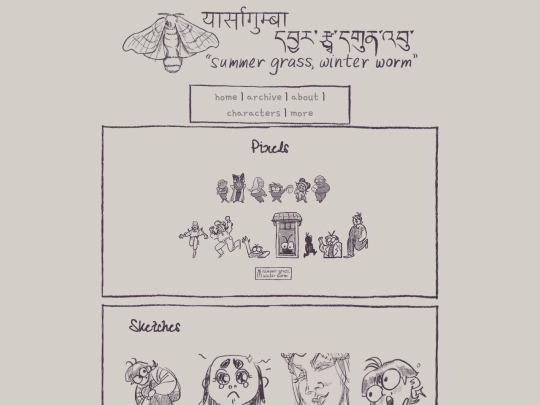 यार्सागुम्बा
དབྱར་རྩྭ་དགུན་འབུ་
"summer grass, winter worm"
home | archive | about |
characters | more
Pixels
summer grass,
winter worm
Sketches